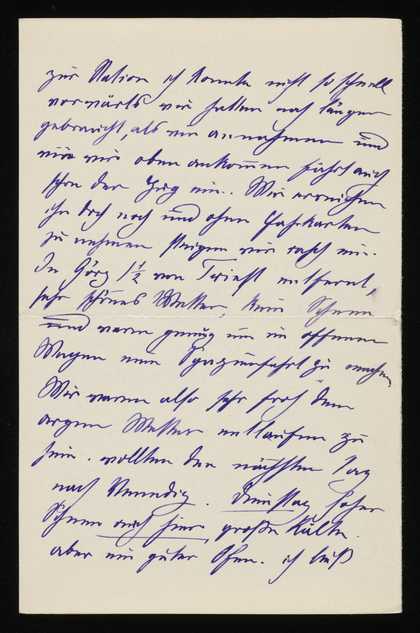 zur Station ich konnte nicht so schnell
vorwärts wir hatten noch länger
gebraucht, als wir annahmen und
wie wir oben ankommen fährt auch
schon der Zug ein. Wir erreichen
ihn doch noch und ohne Fahrkarten
zu nehmen steigen wir rasch ein.
In Görz 1½ von Triest entfernt,
sehr schönes Wetter, kein Schnee
und warm genug um im offenen
Wagen eine Spazierfahrt zu machen
Wir waren also sehr froh dem
argen Wetter entlaufen zu
sein. wollten den nächsten Tag
nach Venedig. Dienstag hoher
Schnee auch hier, große Kälte.
aber ein guter Ofen. ich ließ